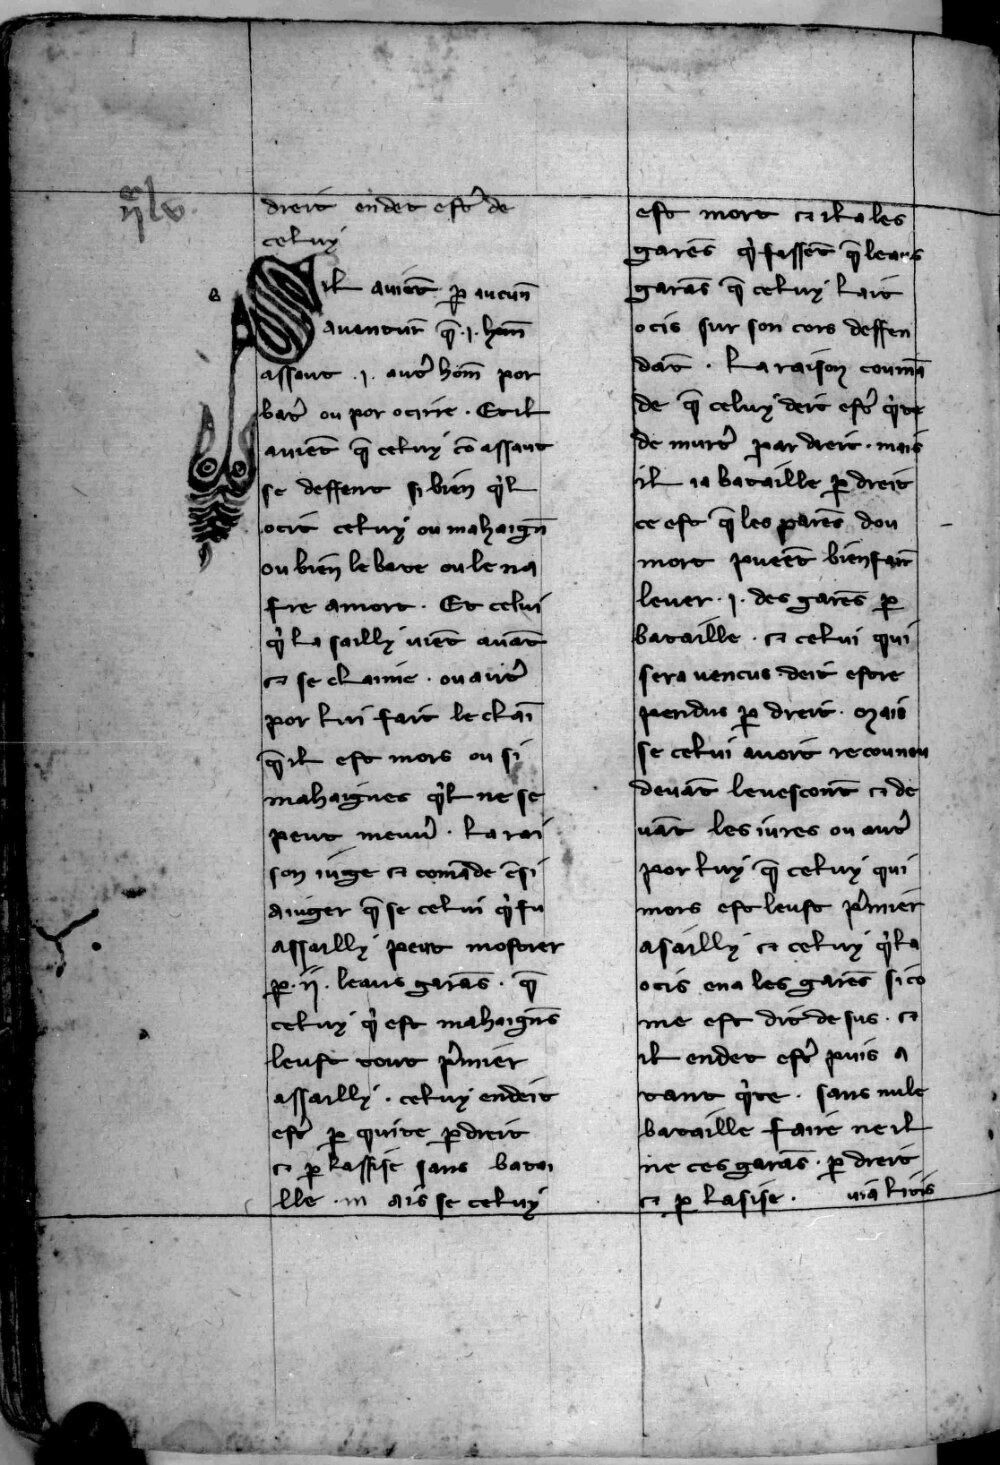 dreit endet est̉ de
celuy
Sil auiēt ꝑ aucun̄
auantur̄ q̄ .i. hom̄
assaut .i. aut̉ hōm por
bat̉ ou por ocirre . Et il
auiēt q̄ celuy cō assaut
se deffent si bien q̉l
ocit celuy ou mahaign̄
ou bien le bate ou le na
fre a mort . Et celui
q̉ la sailly uiēt auāt
⁊ se claime . ou aut̉
por lui fait le claī
q̄ il est mors ou si
mahaignes q̉l ne se
peut meuủ . La rai
son iuge ⁊ comāde ēsi
a iuger q̄ se celui q̉ fu
assailly peut mostrer
ꝑ .ii. leaus garās . q̄
celuy q̉ est mahaign̄s
leust tout p̉mier
assailly . celuy endeit
est̉ ꝑ quite ꝑ dreit
⁊ ꝑ lassise sans batai
lle . mais se celuy
est mort ⁊ il a les
garēs q̉ fassēt q̄ leaus
garās q̄ celuy lait
ocis sur son cors deffen
dāt . La raison coumā
de q̄ celuy deit est̉ q̉te
de murt̉ par dreit . mais
il ia bataille ꝑ dreit
ce est q̄ les parēs dou
mort pueēt bien fair̄
leuer .i. des garēs ꝑ
bataille . ⁊ celui qui
sera uencus deit estre
pendus ꝑ dreit . Mais
se celui auoit recouneu
deuāt leuescont̄ ⁊ de
uāt les iures ou aut̉
por luy q̄ celuy qui
mors est leust p̉mier
asailly ⁊ celuy q̉ la
ocis ena les garēs si co
me est dit desus . ⁊
il endet est̉ puis a
tant q̉te . sans nule
bataille faire ne il
ne ces garās . ꝑ dreit
⁊ ꝑ lasise .